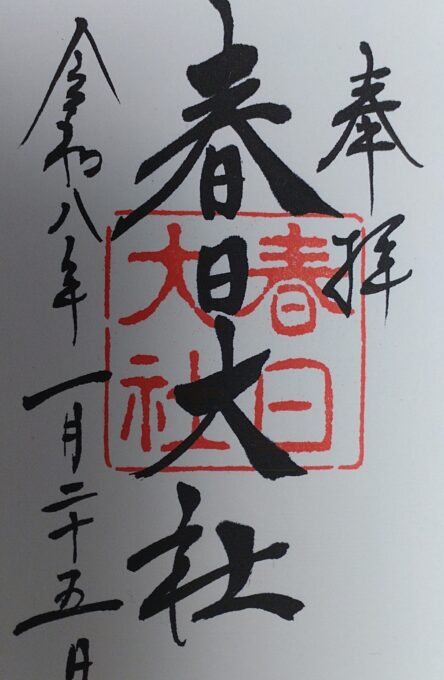 奉拝
春日大社
春日大社
令和八年一月二十五日